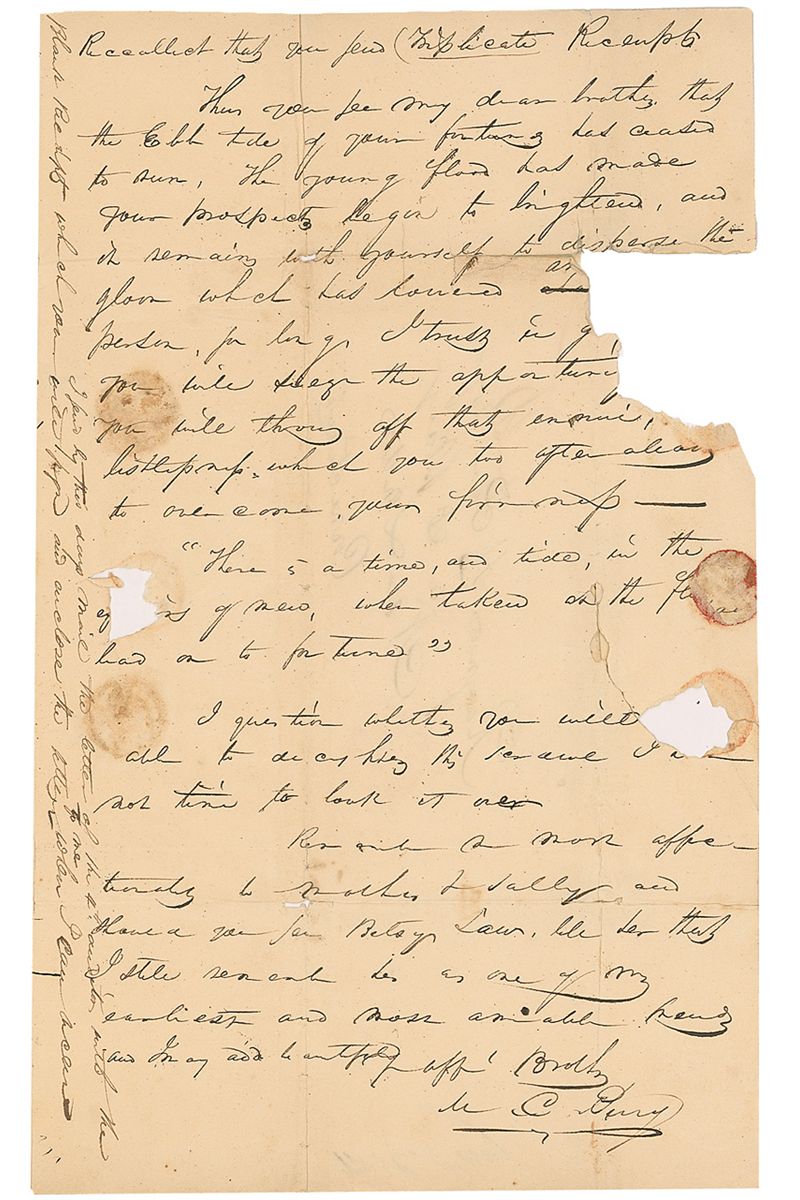 Reccollect that you send (Triplicate Receipts
Thus you see my dear brother that
the Ebb tide of your fortune has ceased
to run, the young flood has made
your prospects begin to brighten, and
it remains with yourself to disperse the
gloom which has lowered
person, for long, I trust in
you will seize the opportuni
you will throw off that ennui,
listlessness, which you too often allow
to overcome your firmness —
"There is a time, and tide, in the
of men, when taken at the
lead on to fortune"
I question whether you will
able to decypher this scrawl I
not time to look it over
Remember me most affec
tionately to mother & Sally and
you see Betsy Law. tell her that
I still remember her as one of my
earliest and most amiable friends
and I may add beautiful aff' Brother
M C Perry
I send by this days mail the letter of the 4th auditor to me with the
Blank Receipts which you will sign and enclose the letter when I can